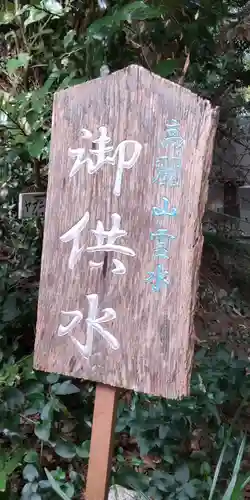 高 山霊水
御供水